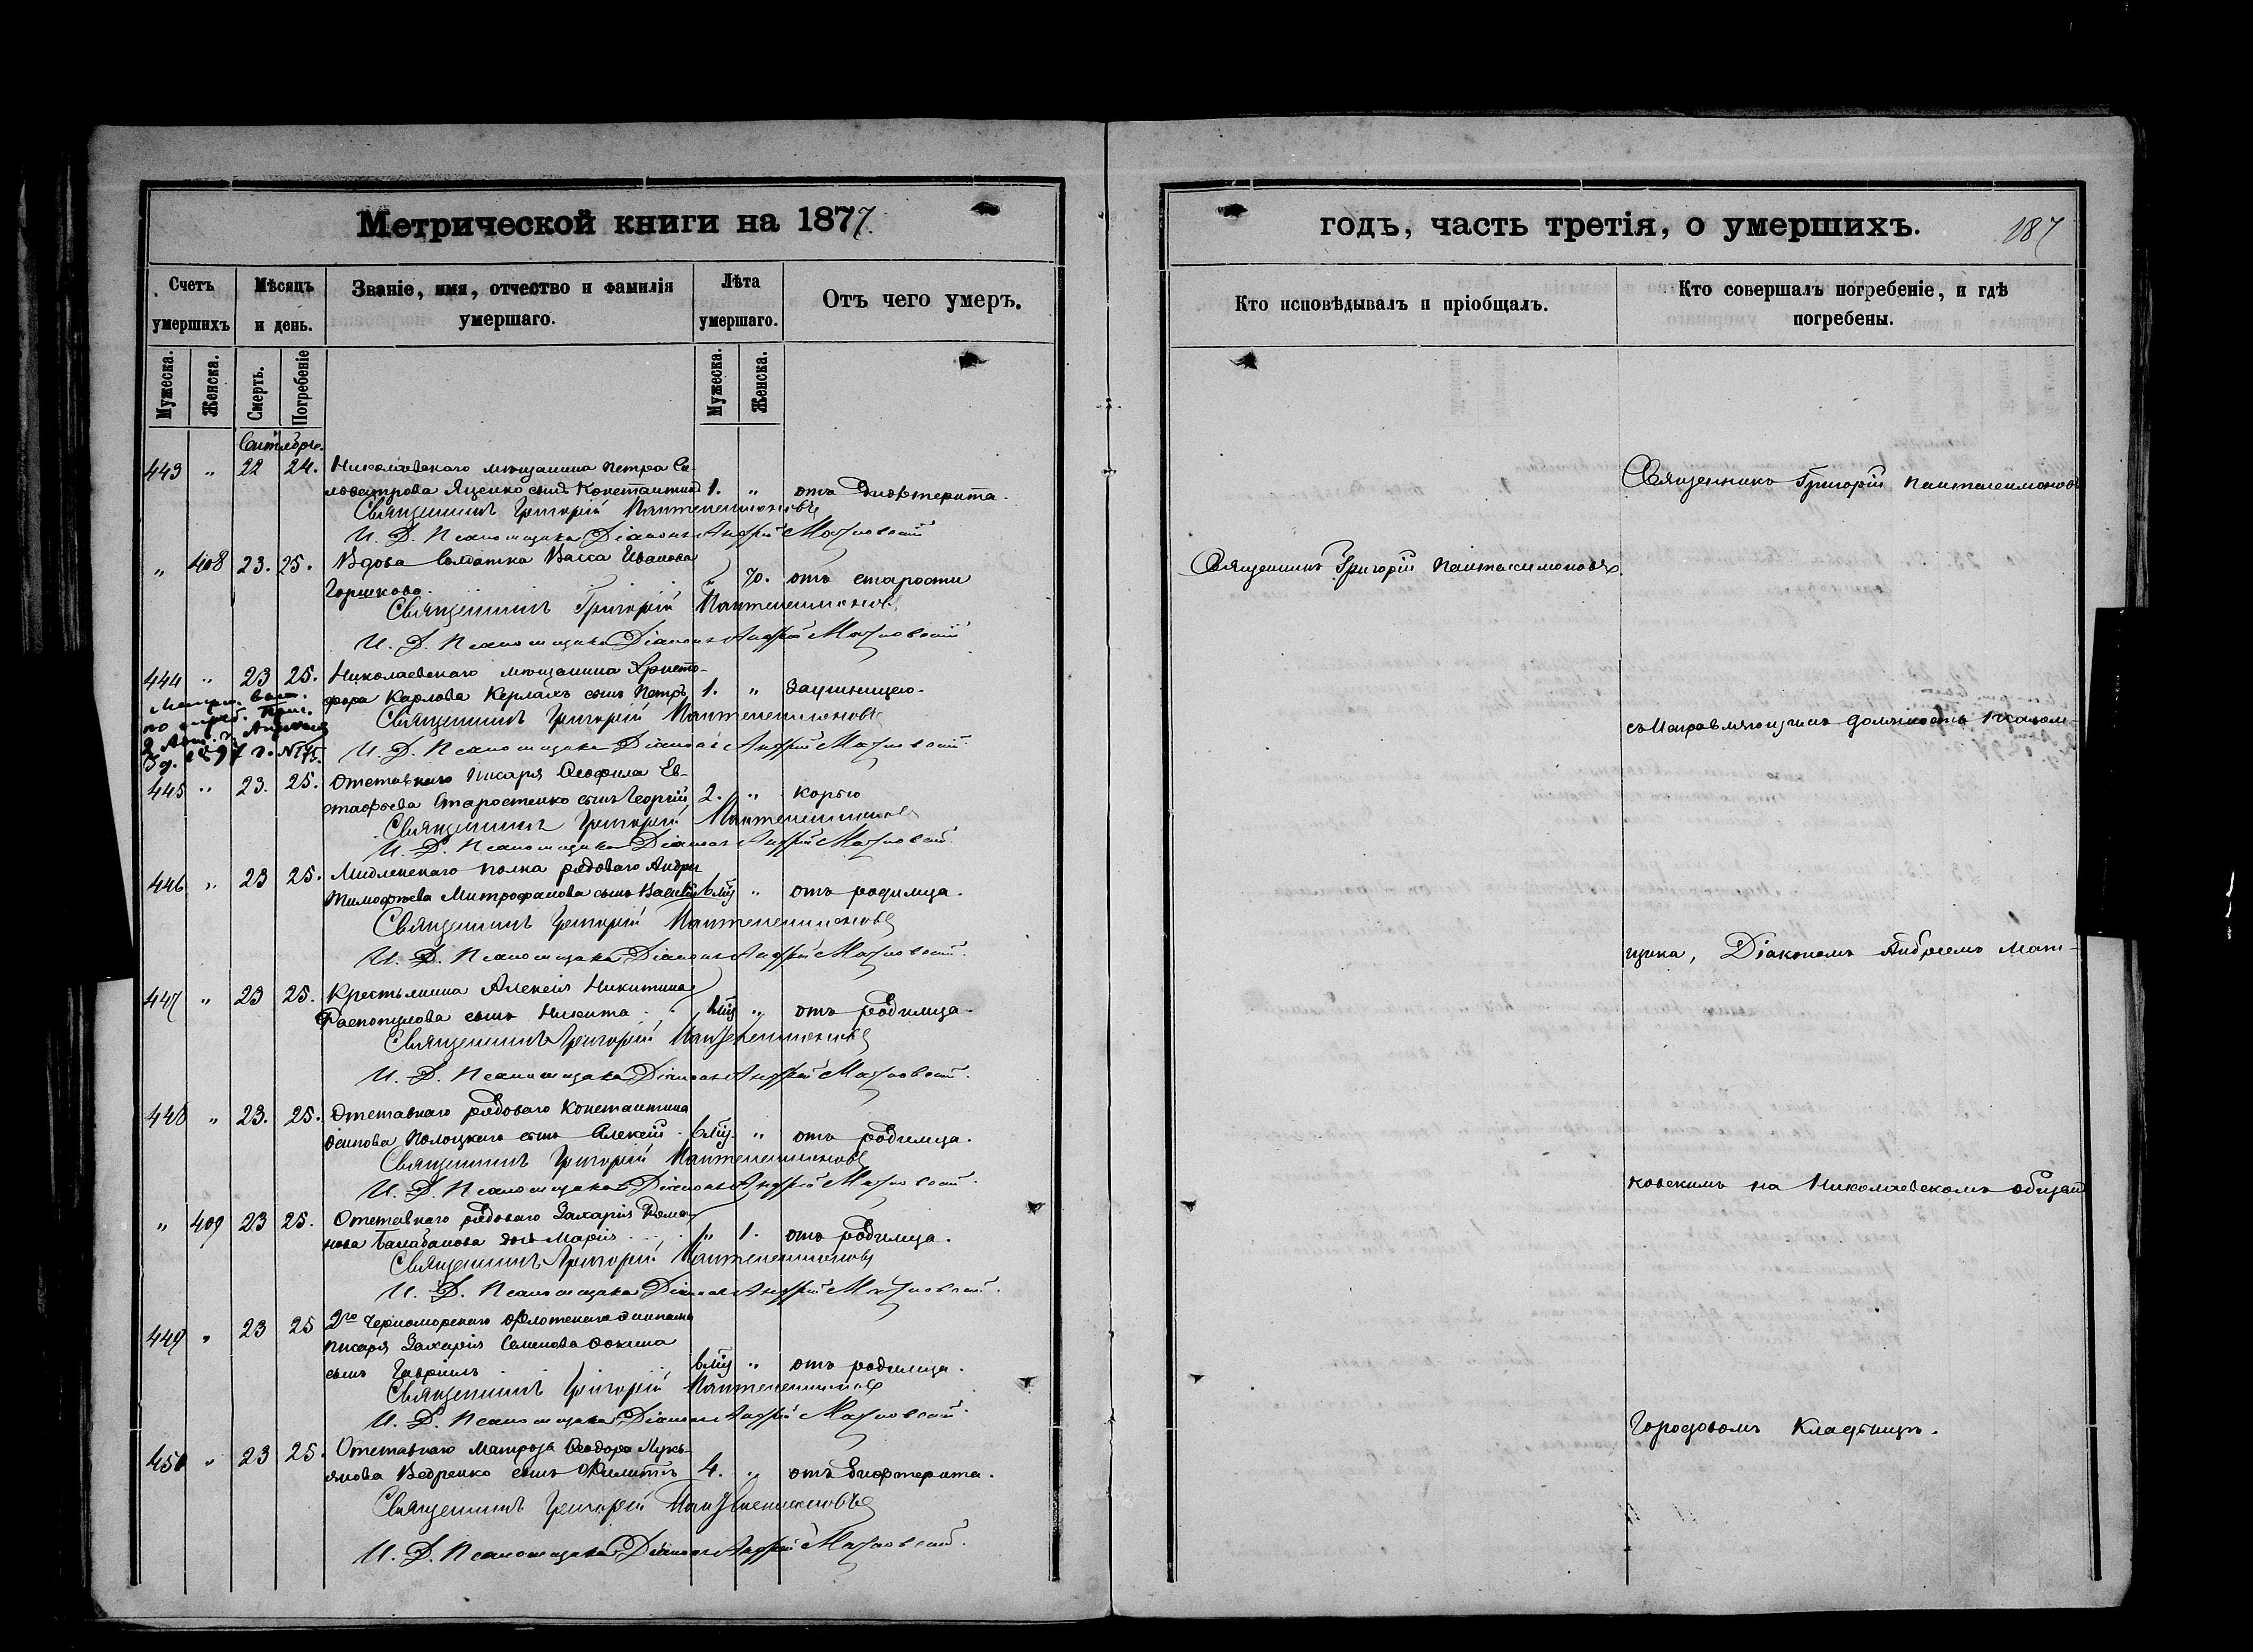 Метрической книги на 1877.
Счетъ умершихъ
Мѣсяцъ и день.
Званіе, имя, отчество и фамилія умершаго.
Лѣта умершаго.
Отъ чего умеръ.
Мужеска.
Женска.
Смерть.
Погребеніе
Мужеска.
Женска.
Сентябрь.
443 " 22 24. Николаевскаго мѣщанина Петра Си-
львестрова Яценко сынъ Константинъ 1. " отъ дифтерита.
Священникъ Григорій Пантелеимоновъ
И. Д. Псаломщика Діаконъ Андрей
" 408 23. 25. Вдова солдатка Васса Иванова
Горшкова. " 70. отъ старости
Священникъ Григорій Пантелеимоновъ
И. Д. Псаломщика Діаконъ Андрей
444 " 23 25. Николаевскаго мѣщанина Христо-
фора Карлова Керлахъ сынъ Петръ 1. " Заушницею.
Священникъ Григорій Пантелеимоновъ
И. Д. Псаломщика Діаконъ Андрей
1897 г. №
445 " 23. 25. Отставнаго писаря Ѳеофила Ев-
стафьева Старостенко сынъ Георгій 2. " корью
Священникъ Григорій Пантелеимоновъ
И. Д. Псаломщика Діаконъ Андрей
446 " 23 25. полка рядоваго Андрея
Тимофѣева Митрофанова сынъ Василій 6 мѣс " отъ родимца.
Священникъ Григорій Пантелеимоновъ
И. Д. Псаломщика Діаконъ Андрей
447 " 23 25. Крестьянина Алексѣя Никитина
Распопулова сынъ Никита мѣс " отъ родимца.
Священникъ Григорій Пантелеимоновъ
И. Д. Псаломщика Діаконъ Андрей
448 " 23. 25. Отставнаго рядоваго Константина
Осипова Полоцкаго сынъ Алексій 6 мѣс. " отъ родимца.
Священникъ Григорій Пантелеимоновъ
И. Д. Псаломщика Діаконъ Андрей
" 409 23 25. Отставнаго рядоваго Захарія Рома-
нова Балабанова дочь Марія " 1. отъ родимца.
Священникъ Григорій Пантелеимоновъ
И. Д. Псаломщика Діаконъ Андрей
449 " 23 25 2го Черноморскаго Флотскаго экипажа
писаря Захарія Семенова Фокина
сынъ Гавріилъ 6 мѣс " отъ родимца.
Священникъ Григорій Пантелеимоновъ
И. Д. Псаломщика Діаконъ Андрей
450 " 23 25. Отставнаго матроза Ѳеодора Лукь-
янова Ведренко сынъ Филиппъ 4. " отъ дифтерита.
Священникъ Григорій Пантелеимоновъ
И. Д. Псаломщика Діаконъ Андрей
годъ, часть третія, о умершихъ.
187
Кто исповѣдывалъ и пріобщалъ.
Кто совершалъ погребеніе, и гдѣ погребены.
Священникъ Григорій Пантелеимоновъ
Священникъ Григорій Пантелеимоновъ.
съ Исправляющимъ должность псалом-
щика, Діакономъ Андреемъ Мат-
ковскимъ на Николаевскомъ общемъ
Городовомъ Кладбищѣ.